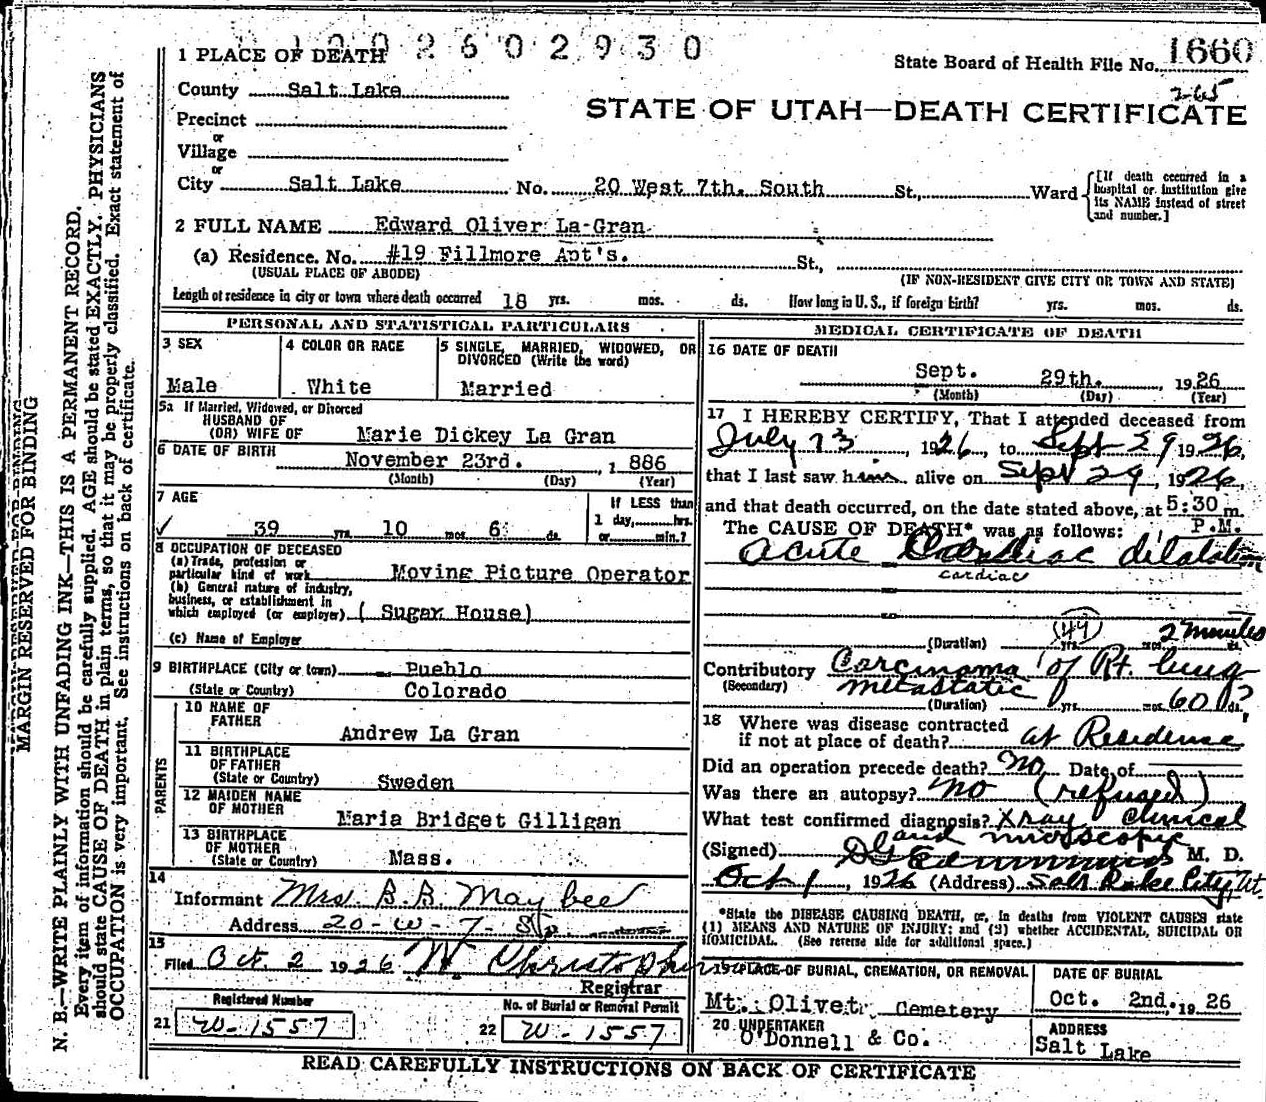 1 0 0 2 6 0 2 9 3 0
State Board of Health File No. 1660
265
STATE OF UTAH—DEATH CERTIFICATE
1 PLACE OF DEATH
County Salt Lake
Precinct
or
Village
or
City Salt Lake No. 20 West 7th. South St., Ward
[If death occurred in a hospital or institution give its NAME instead of street and number.]
2 FULL NAME Edward Oliver La-Gran
(a) Residence. No. #19 Fillmore Apt's. St.,
(USUAL PLACE OF ABODE) (IF NON-RESIDENT GIVE CITY OR TOWN AND STATE)
Length of residence in city or town where death occurred 18 yrs. mos. ds. How long in U. S., if foreign birth? yrs. mos. ds.
PERSONAL AND STATISTICAL PARTICULARS
3 SEX
Male
4 COLOR OR RACE
White
5 SINGLE, MARRIED, WIDOWED, OR DIVORCED (Write the word)
Married
5a If Married, Widowed, or Divorced
HUSBAND OF
(OR) WIFE OF Marie Dickey La Gran
6 DATE OF BIRTH November 23rd. , 1 886
(Month) (Day) (Year)
7 AGE
39 yrs. 10 mos 6 ds.
If LESS than
1 day, hrs.
or min.?
8 OCCUPATION OF DECEASED
(a) Trade, profession or
particular kind of work Moving Picture Operator
(b) General nature of industry,
business, or establishment in
which employed (or employer) ( Sugar House)
(c) Name of Employer
9 BIRTHPLACE (City or town) Pueblo
(State or Country) Colorado
PARENTS
10 NAME OF
FATHER
Andrew La Gran
11 BIRTHPLACE
OF FATHER
(State or Country) Sweden
12 MAIDEN NAME
OF MOTHER
Maria Bridget Gilligan
13 BIRTHPLACE
OF MOTHER
(State or Country) Mass.
14
Informant Mrs B.B. Maybee
Address 20-W-7-So
15
Filed Oct. 2 1926 W. Christopherson
Registrar
Registered Number
21 W-1557
No. of Burial or Removal Permit
22 W-1557
MEDICAL CERTIFICATE OF DEATH
16 DATE OF DEATH
Sept. 29th. , 1926
(Month) (Day) (Year)
17 I HEREBY CERTIFY, That I attended deceased from
July 13, 1926, to Sept 29 1926,
that I last saw him alive on Sept 29, 1926,
and that death occurred, on the date stated above, at 5:30 m.
P.M.
The CAUSE OF DEATH* was as follows:
Acute Cardiac dilatation
cardiac
(Duration) (44) yrs. mos. 2 minutes ds.
Contributory Carcinoma of Rt. lung
(Secondary) metastatic
(Duration) yrs. mos. 60? ds.
18 Where was disease contracted
if not at place of death? at Residence
Did an operation precede death? No Date of
Was there an autopsy? No (refused)
What test confirmed diagnosis? Xray clinical
and microscopic
(Signed) D G Edmunds M. D.
Oct 1, 1926 (Address) Salt Lake City, Ut
*State the DISEASE CAUSING DEATH, or, in deaths from VIOLENT CAUSES state
(1) MEANS AND NATURE OF INJURY; and (2) whether ACCIDENTAL, SUICIDAL OR
HOMICIDAL. (See reverse side for additional space.)
19 PLACE OF BURIAL, CREMATION, OR REMOVAL
Mt. Olivet Cemetery
DATE OF BURIAL
Oct. 2nd., 1926
20 UNDERTAKER
O'Donnell & Co.
ADDRESS
Salt Lake
READ CAREFULLY INSTRUCTIONS ON BACK OF CERTIFICATE
MARGIN RESERVED FOR BINDING
N. B.—WRITE PLAINLY WITH UNFADING INK—THIS IS A PERMANENT RECORD.
Every item of information should be carefully supplied. AGE should be stated EXACTLY. PHYSICIANS
should state CAUSE OF DEATH in plain terms, so that it may be properly classified. Exact statement of
OCCUPATION is very important. See instructions on back of certificate.